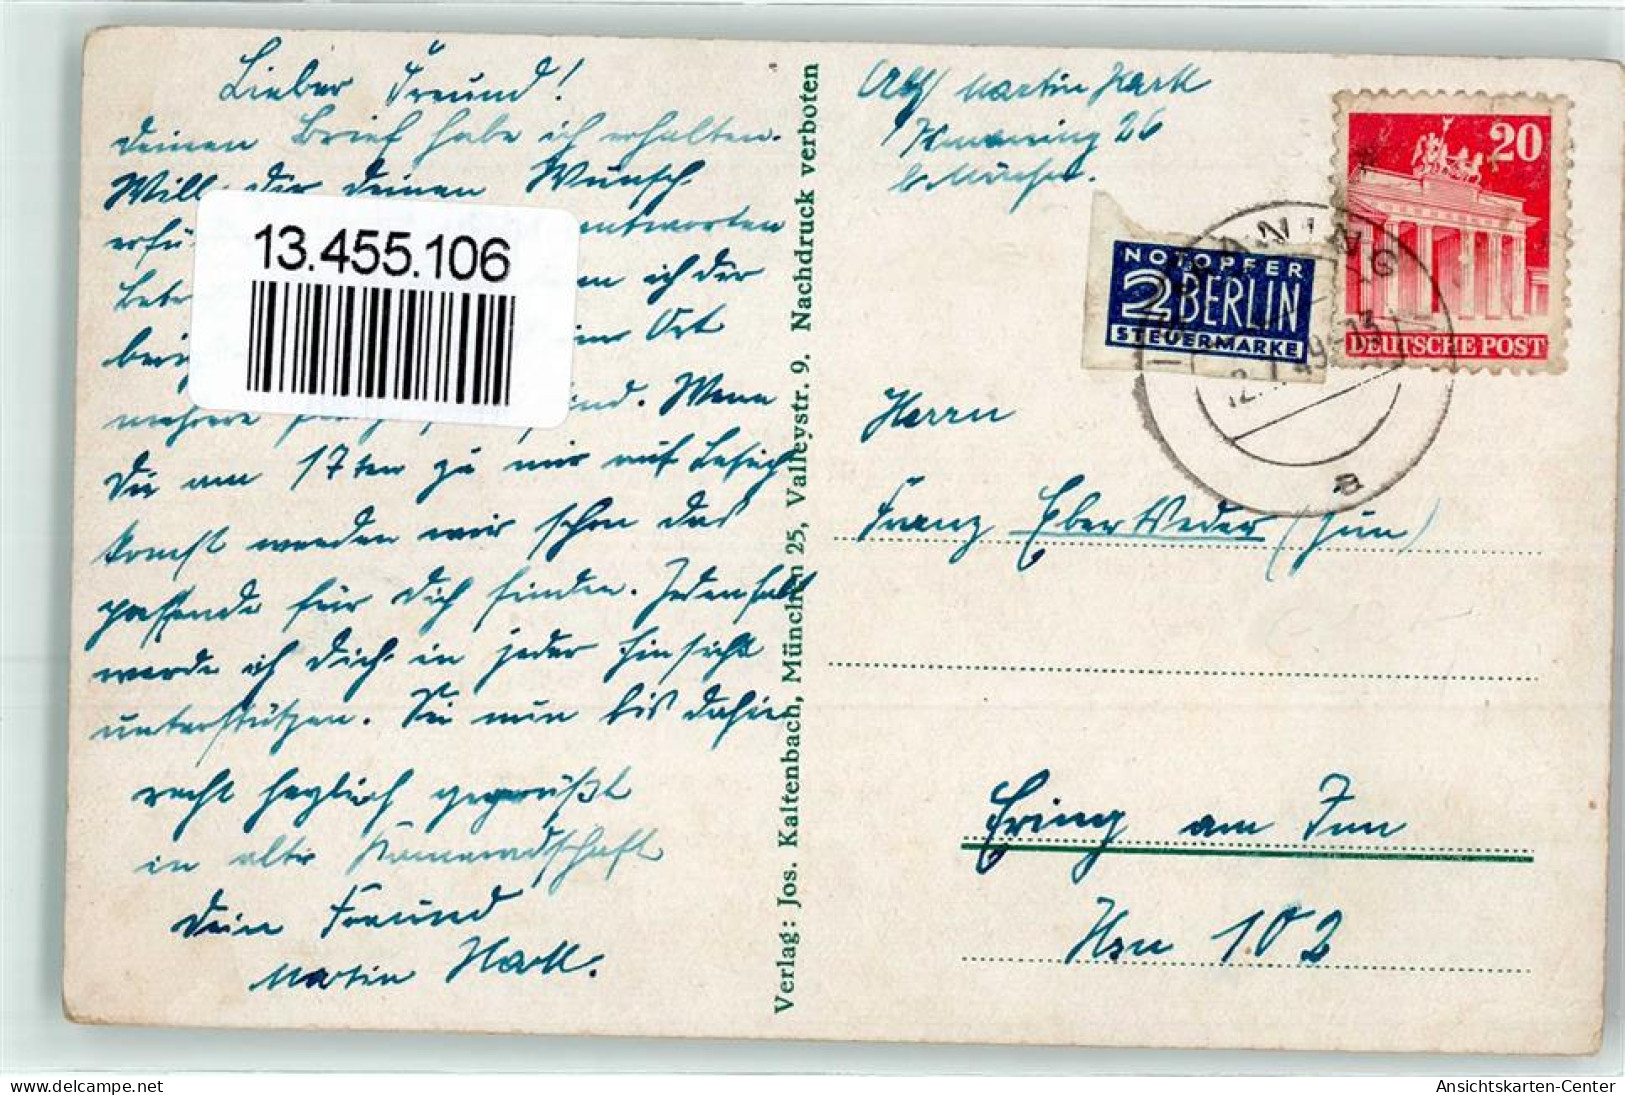 Lieber Freund!
Deinen Brief habe ich erhalten.
Will dir deinen Wunsch
antworten
ich der
Ort
mehrere sind. Wenn
Du am 17ten zu mir auf Besuch
kommst werden wir schon das
passende für Dich finden. Jedenfalls
werde ich Dich in jeder Hinsicht
unterstützen. Sei nun bis dahin
recht herzlich gegrüßt
in alter Kameradschaft
Dein Freund
Martin Hark.
13.455.106
Verlag: Jos. Kaltenbach, München 25, Valleystr. 9. Nachdruck verboten
(Abs) Martin Hark
26
b. München.
NOTOPFER
2 BERLIN
STEUERMARKE
20
DEUTSCHE POST
a
Herrn
Franz Ober Weder (Jun)
Ering am Inn
Hsn 102
https://www.delcampe.net
Ansichtskarten-Center